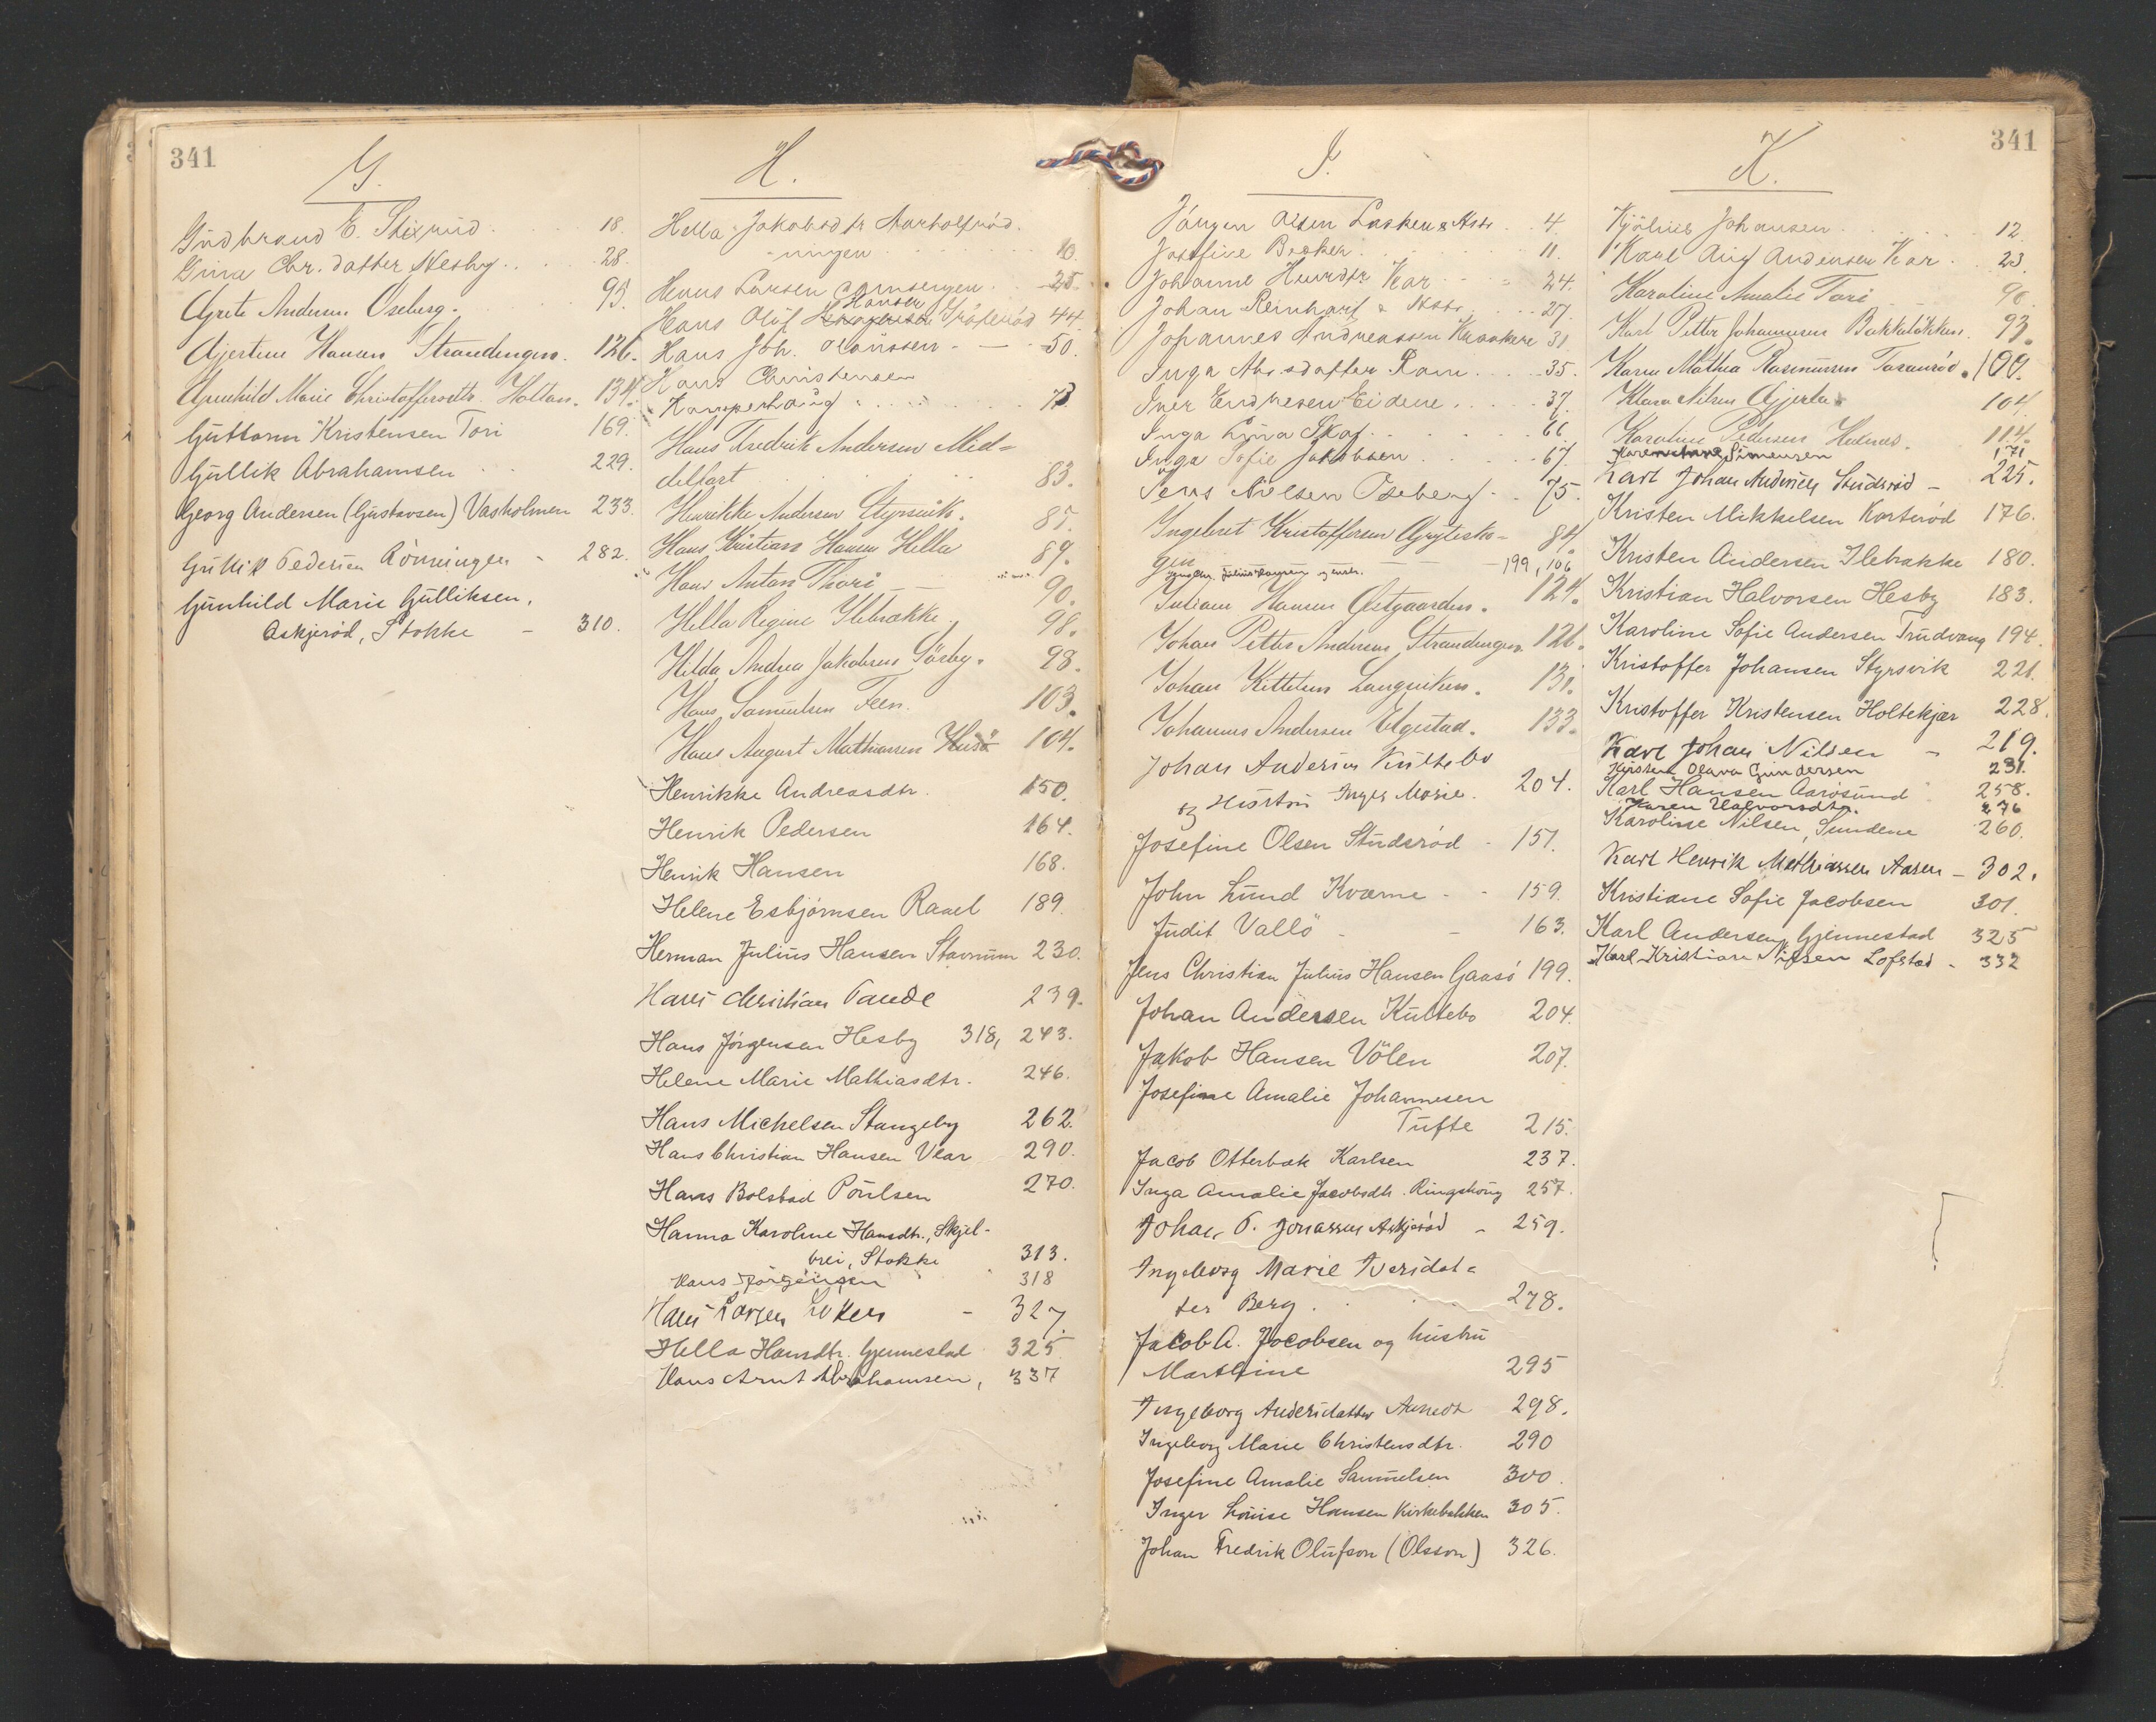 341
G.
Gudbrand E. Stixrud 18.
Gina Chr. datter Hesby 28.
Grete Andersen Oseberg. 95.
Gjertine Hansen Strandengen. 126.
Gunhild Marie Christoffersdtr. Holtan. 134.
Guttorm Kristensen Tori 169.
Gullik Abrahamsen 229.
Georg Andersen (Gustavsen) Vasholmen 233.
Gullik Pedersen Rönningen - 282.
Gunhild Marie Gulliksen,
Askjerød, Stokke - 310.
H.
Hella Jakobsdtr
-ningen 10.
Hans Larsen 25.
Hansen
Hans Oluf 44.
Hans Joh. - 50.
Hans Christensen
Kamperhaug
Hans Fredrik Andersen Mid=
delfart 83.
Henrikke Andersen Styrsvik. 85.
Hans Kristian Hansen Hella 89.
Hans Anton Thori 90.
Hella Regine Ilebrække. 98.
Hilda Andrea Jakobsen Sörby. 98.
Hans Samuelsen Feen. 103.
Hans August Mathiassen Husö 104.
Henrikke Andreasdtr. 150.
Henrik Pedersen 164.
Henrik Hansen 168.
Helene Esbjörnsen Rauel 189.
Herman Julius Hansen Stavnum 230.
Hans Christian Pande 239.
Hans Jörgensen Hesby 318, 243.
Helene Marie Mathiasdtr. 246.
Hans Michelsen Stangeby 262.
Hans Christian Hansen Vear 290.
Hans Bolstad Poulsen 270.
Hanna Karoline Hansdtr., Skjel-
brei, Stokke 313.
Hans Jörgensen 318
Hans Larsen Løken - 327.
Hella Hansdtr. Gjennestad 325
Hans Arnt Abrahamsen, 337
I.
Jörgen Olsen 4.
Josefine Becker 11.
Johanne Kar 24.
Johan Reinhart 27.
Johannes Andreassen 31
Inga datter Ram 35.
Iver Endresen Eidene 37.
Inga Lina Skaf 66
Inga Sofie Jakobsen 67.
Jens Nielsen Oseberg 75.
Ingebret Kristoffersen Grytesko- 84.
gen - 199, 106
Juliane Hansen Östgaarden. 124.
Johan Petter Andersen Strandengen. 126.
Johan Kittelsen Langviken. 131.
Johannes Andersen Elgestad. 133.
Johan Andersen Kultebo
og Hustru Inger Marie. 204.
Josefine Olsen Studsrød - 151.
John Lund Kværne - 159.
Judit Vallö - 163.
Jens Christian Julius Hansen Gaasö 199.
Johan Andersen Kultebo 204.
Jakob Hansen Völen 207.
Josefine Amalie Johannesen
Tufte 215.
Jacob Otterbæk Karlsen 237.
Inga Amalie Jacobsdtr. Ringshoug 257.
Johan P. Jonassen Askjerød - 259.
Ingeborg Marie Iversdat=
ter Berg 278.
Jacob A. Jacobsen og hustru
Marthine 295
Ingeborg Andersdatter 298.
Ingeborg Marie Christensdtr. 290
Josefine Amalie Samuelsen 300.
Inger Louise Hansen Kirkebakken 305.
Johan Fredrik Olufson (Olsson) 326.
341
K.
Kjölner Johansen 12.
Karl Aug Andersen Kar 23.
Karoline Amalie Tori 90.
Karl Petter Johannesen Bakkeløkken. 93.
Karen Mathea Rasmussen Tassenröd. 100.
Klara Nilsen Gjerla 104.
Karoline Pedersen 114.
Karen Simensen 171
Karl Johan Andersen Studsrød - 225.
Kristen Mikkelsen Korterød 176.
Kristen Andersen Ilebrække 180.
Kristian Halvorsen Hesby 183.
Karoline Sofie Andersen Trudvang 194.
Kristoffer Johansen Styrsvik 221.
Kristoffer Kristensen Holtekjær 228.
Karl Johan Nilsen - 219.
Kirstine Olava Gundersen 231.
Karl Hansen Aarösund 258.
Karen Halvorsdtr. 276
Karoline Nilsen, Sundene 260.
Karl Henrik Mathiassen Aasen - 302.
Kristiane Sofie Jacobsen 301.
Karl Andersen, Gjennestad 325
Karl Kristian Nilsen Lofstad - 332